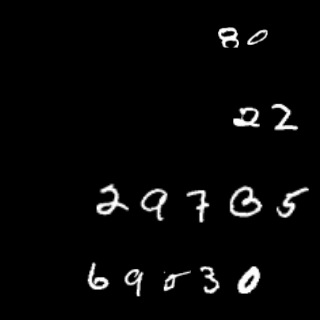 80
22
29735
69530